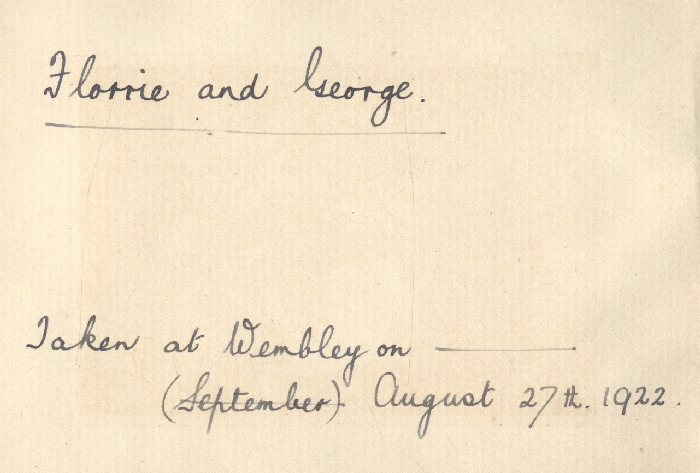 Florrie and George.
Taken at Wembley on ————
(September) August 27th. 1922.